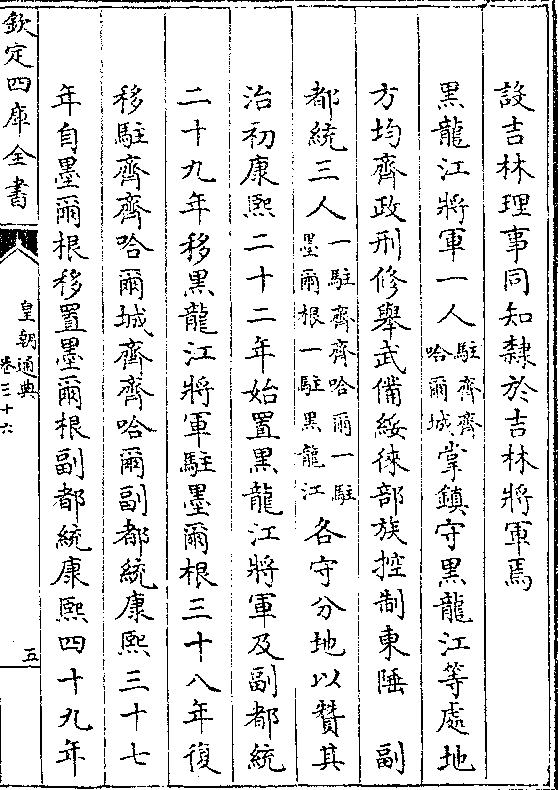 設吉林理事同知隸於吉林將軍焉
黑龍江將軍一人駐齊齊哈爾城掌鎮守黑龍江等處地
方均齊政刑修舉武備綏徠部族控制東陲　副
都統三人一駐齊齊哈爾一駐墨爾根一駐黑龍江各守分地以贊其
治初康熙二十二年始置黑龍江將軍及副都統
二十九年移黑龍江將軍駐墨爾根三十八年復
移駐齊齊哈爾城齊齊哈爾副都統康熙三十七
年自墨爾根移置墨爾根副都統康熙四十九年
欽定四庫全書
皇朝通典
卷三十六
五